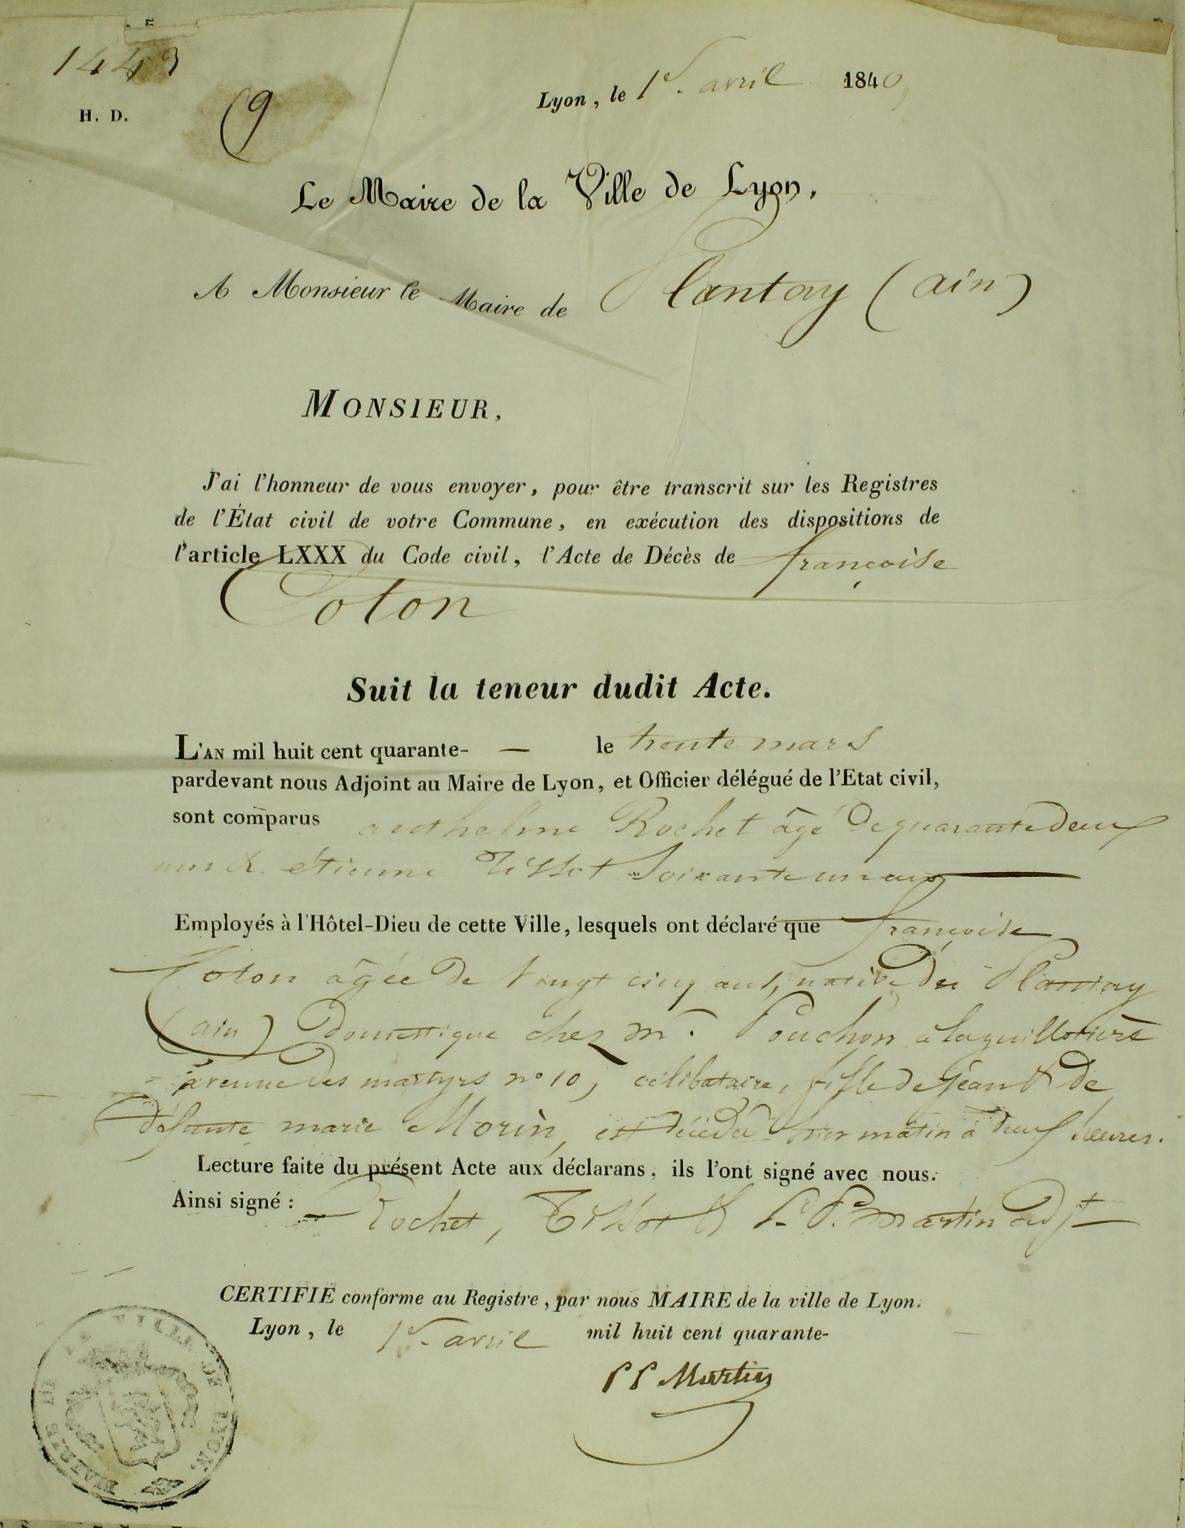 1443
H. D.
9
Lyon, le 1er. avril 1840,
Le Maire de la Ville de Lyon,
A Monsieur le Maire de Plantay (ain)
MONSIEUR,
J'ai l'honneur de vous envoyer, pour être transcrit sur les Registres
de l'État civil de votre Commune, en exécution des dispositions de
l'article LXXX du Code civil, l'Acte de Décès de françoise
Coton
Suit la teneur dudit Acte.
L'AN mil huit cent quarante- — le trente mars
pardevant nous Adjoint au Maire de Lyon, et Officier délégué de l'Etat civil,
sont comparus anthelme Rochet âgé de quarante deux
ans & étienne Tissot Soixante un ans
Employés à l'Hôtel-Dieu de cette Ville, lesquels ont déclaré que françoise
Coton âgée de Vingt cinq ans, native du Plantay
(ain) Domestique chez mr. Pouchon à laguillotière
avenue des martyrs no 10, célibataire, fille de jean & de
défunte marie Morin, est décédée hier matin à deux heures.
Lecture faite du présent Acte aux déclarans, ils l'ont signé avec nous.
Ainsi signé : Rochet, Tissot & P. P. martin adjt
CERTIFIÉ conforme au Registre, par nous MAIRE de la ville de Lyon.
Lyon, le 1er. avril mil huit cent quarante-
P P Martin
MAIRIE DE LA VILLE DE LYON.